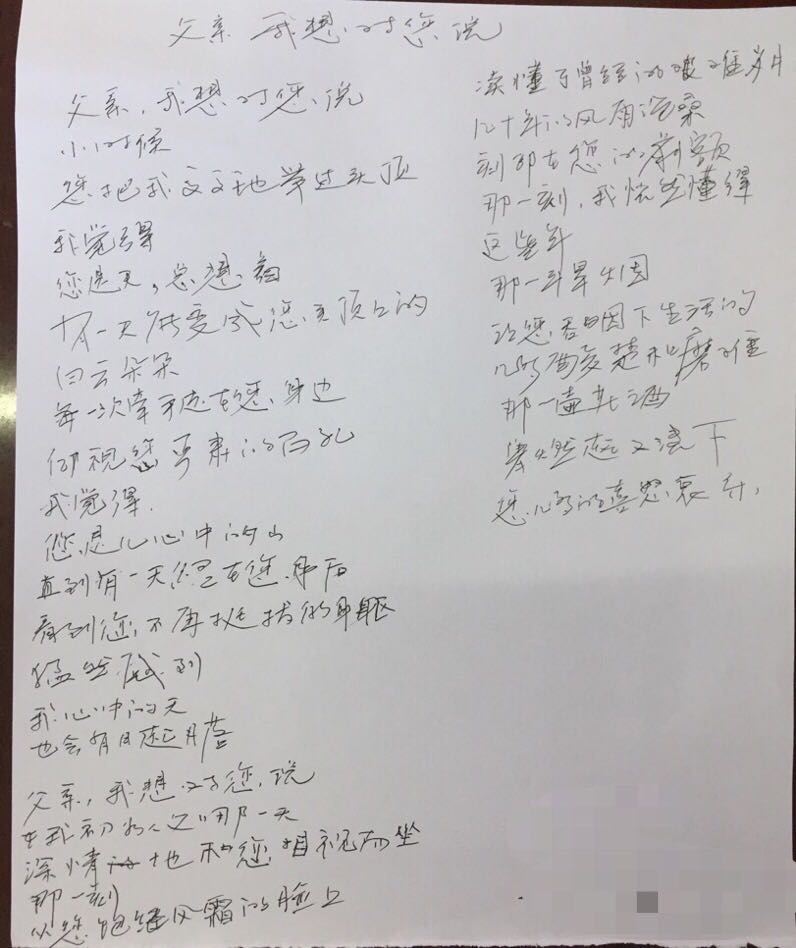 父亲 我想对您说
父亲，我想对您说
小时候
您把我高高地举过头顶
我觉得
您是天，总想着
有一天能变成您头顶上的
白云朵朵
每一次牵手走在您身边
仰视您严肃的面孔
我觉得
您是儿心中的山
直到有一天我在您身后
看到您不再挺拔的身躯
猛然感到
我心中的天
也会有日起月落
父亲，我想对您说
在我初为人父的那一天
深情地和您相视而坐
那一刻
从您饱经风霜的脸上
读懂了曾经的艰难岁月
几十年的风雨沧桑
刻印在您的前额
那一刻，我恍然懂得
这些年
那一斗旱烟
让您吞咽下生活的
几多酸麦楚和磨难
那一壶老酒
燃起又浇下
您几多的喜怒哀乐